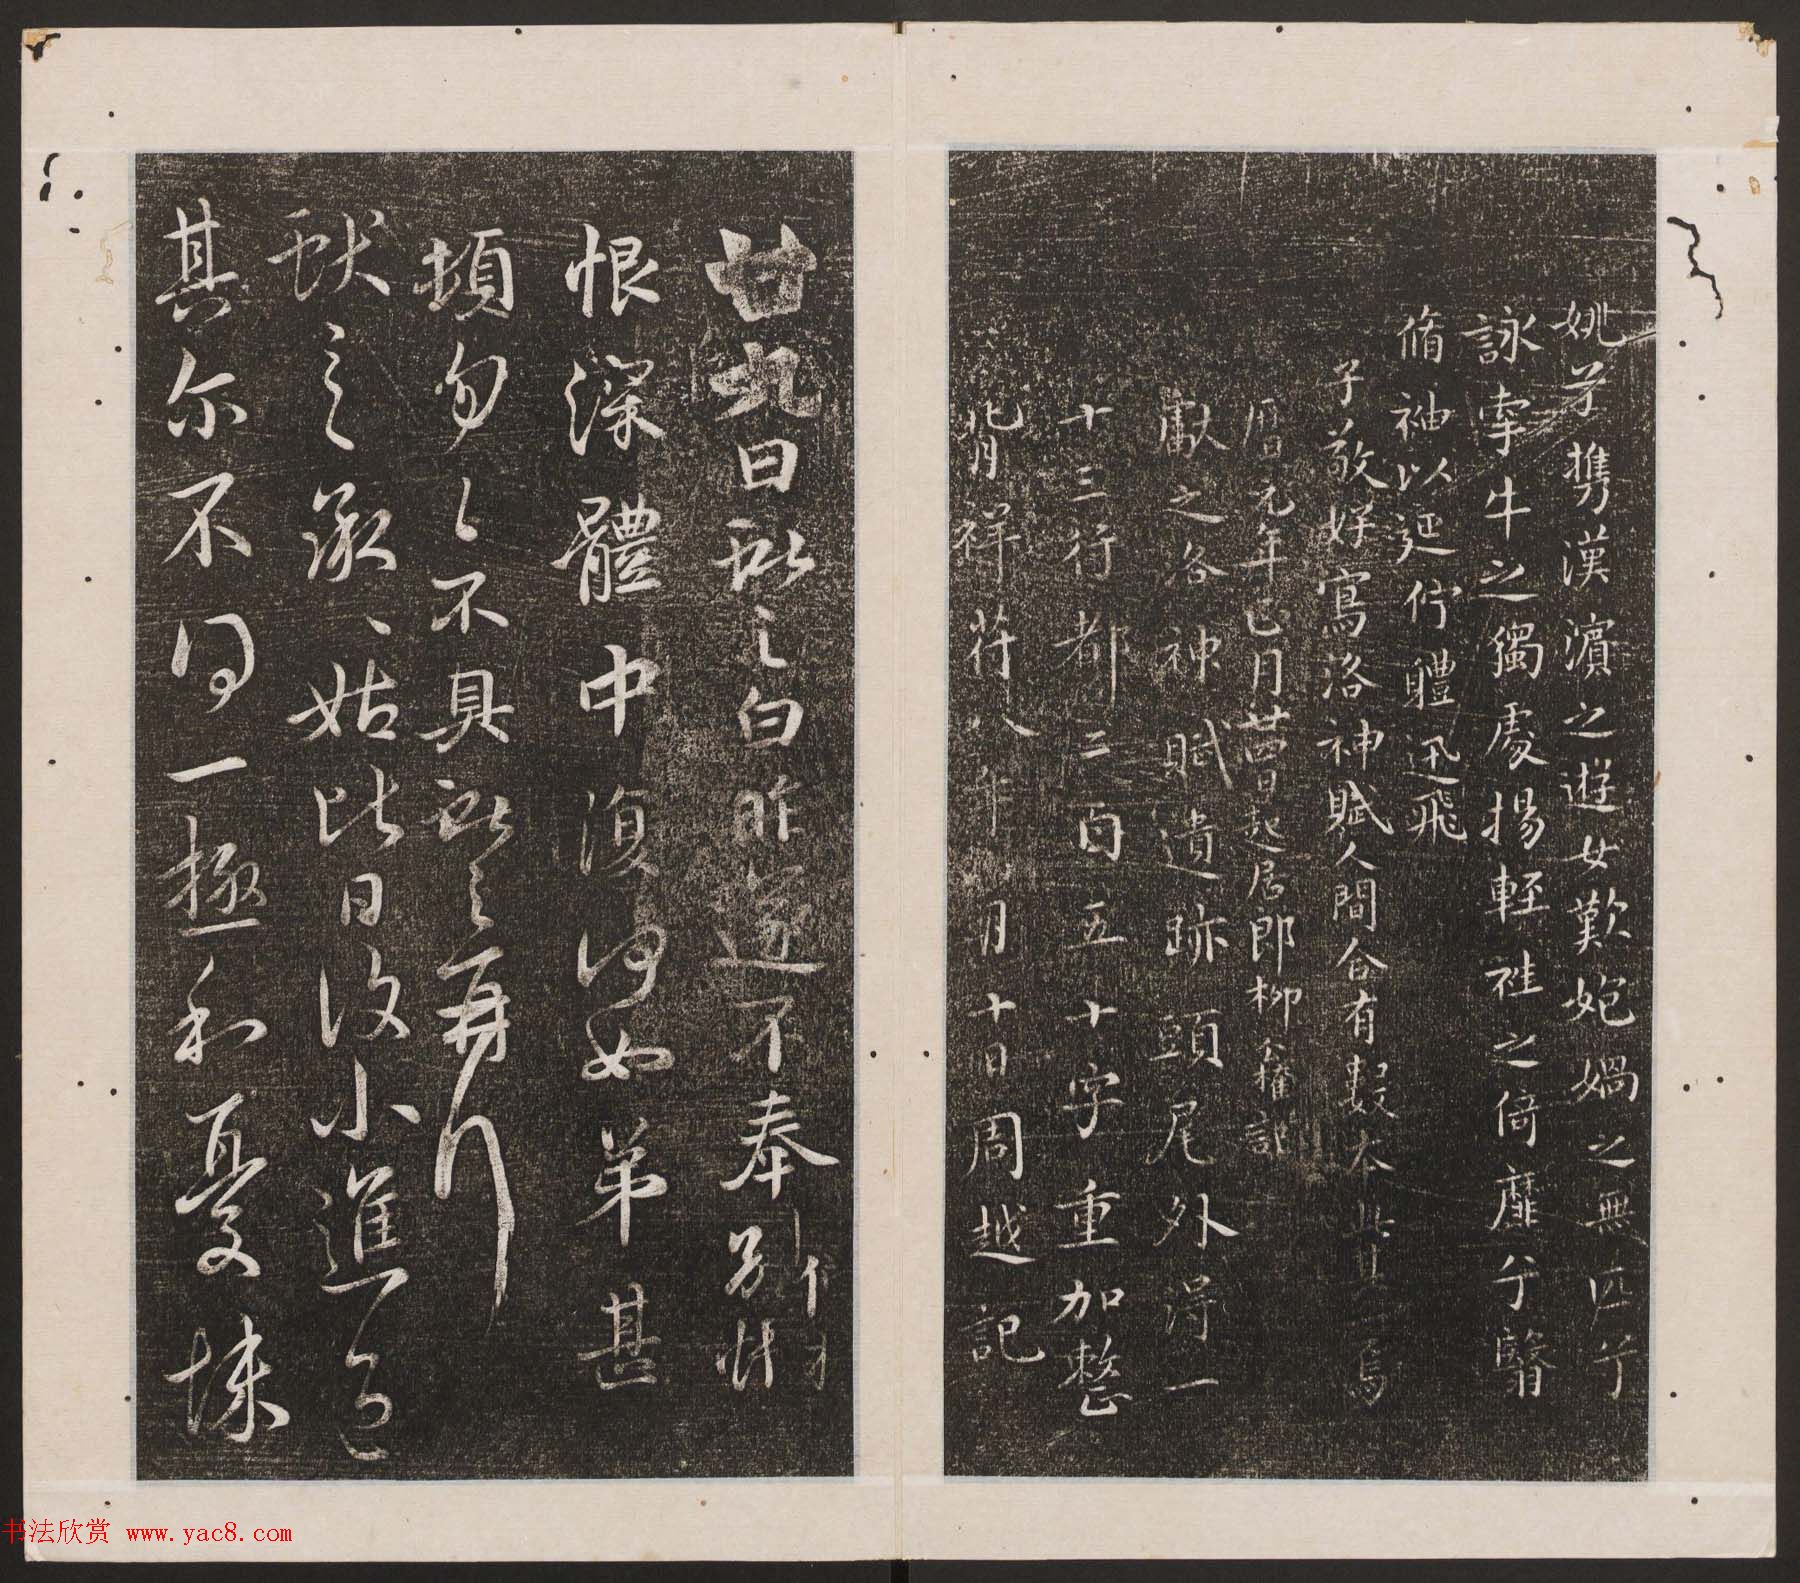 姚兮攜漢濱之遊女歎匏媧之無匹兮
詠牽牛之獨處揚輕袿之倚靡兮翳
脩袖以延佇體迅飛
子敬好寫洛神賦人間合有數本此其一焉
曆元年正月廿四日起居郎柳公權記
獻之洛神賦遺跡頭尾外得一
十三行都二百五十字重加整
背祥符八年 月十日周越記
廿九日獻之白昨遂不奉別悵
恨深體中復何如弟甚
頓匆匆不具獻之再拜
獻之承承姑比日復小進退
其尔不得一極和憂悚
书法欣赏 www.yac8.com